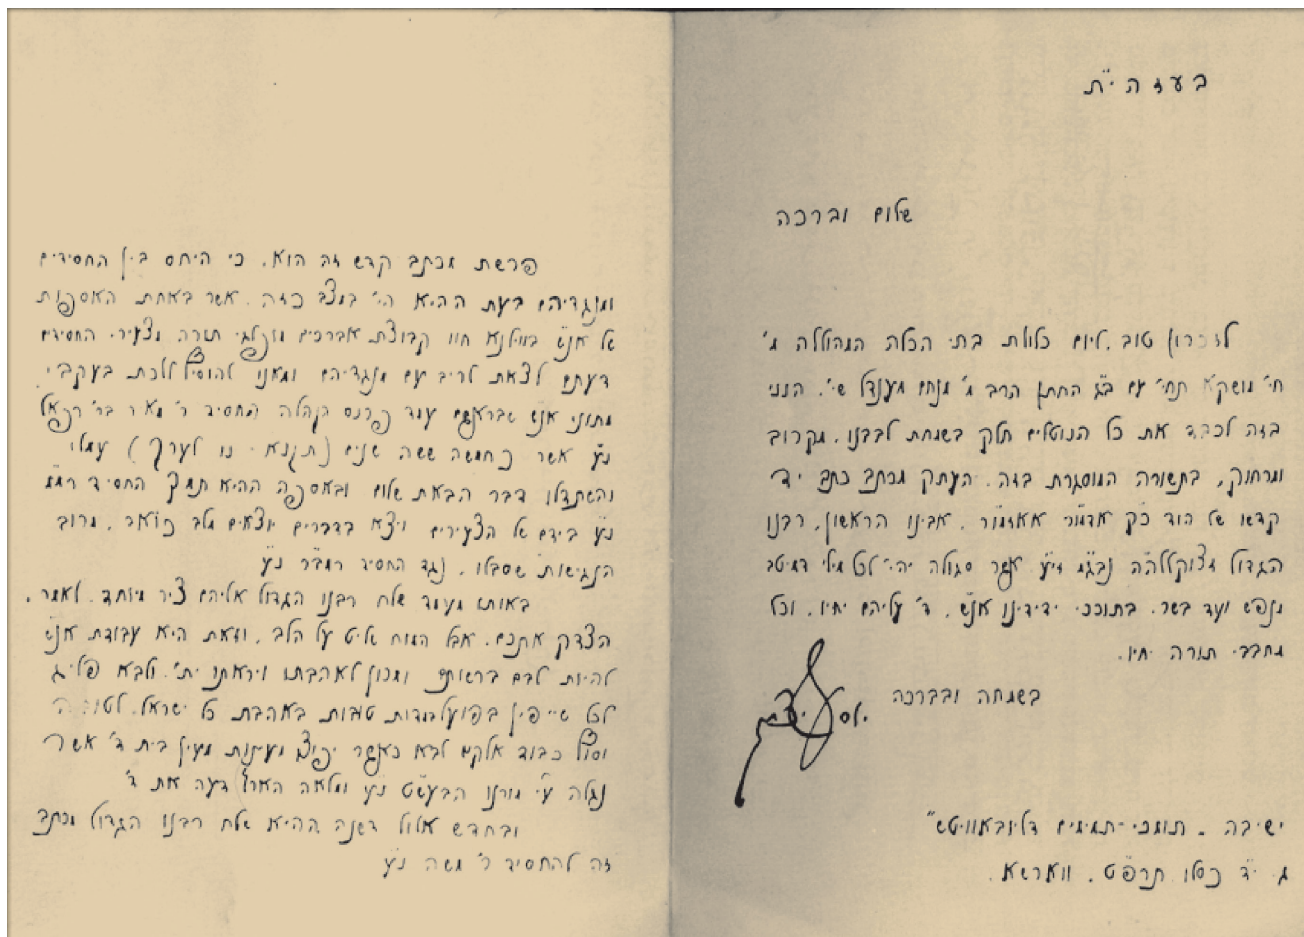 בעזה"ת
שלום וברכה
לזכרון טוב, ליום כלולת בתי הכלה המהוללה מ'
חי' מושקא תחי' עם ב"ג החתן הרב מ' מנחם מענדל שי'. הנני
בזה לכבד את כל הנוטלים חלק בשמחת לבבנו, מקרוב
ומרחוק, בתשורה המוסגרת בזה. העתק מכתב כתב יד
קדשו של הוד כ"ק אדמו"ר אאזמו"ר, אבינו הראשון, רבנו
הגדול זצוקללה"ה נבג"מ זי"ע אשר סגולה יהי' לכל מילי דמיטב
מנפש ועד בשר. בתוככי ידידינו אנ"ש, ד' עליהם יחיו, וכל
מחבבי תורה יחיו.
בשמחה ובברכה
ישיבה - תומכי-תמימים דליובאוויטש"
ג' י"ד כסלו תרפ"ט. ווארשא.
פרשת מכתב קדש זה הוא. כי היחס בין החסידים
ומנגדיהם בעת ההיא הי' במצב כזה. אשר באחת האספות
של אנ"ש בווילנא חוו קבוצת אברכים מופלגי תורה מצעירי החסידים
דעתם לצאת לריב עם מנגדיהם ומאנו להוסיף ללכת בעקבי
מתוני אנ"ש שבראשם עמד פרנס הקהלה החסיד ר' מאיר בר' רפאל
נ"ע אשר כחמשה ששה שנים (תקנא - נו לערך) עמלו
והשתדלו דבר הבאת שלום ובאספה ההיא תמך החסיד
נ"ע בידם של הצעירים ויצא בדברים יוצאים מלב כואב, מרוב
הנגישות שסבלו. נגד החסיד רמב"ר נ"ע
באותו מעמד שלח רבנו הגדול אליהם ציר מיוחד. לאמר.
הצדק אתכם. אבל המוח שליט על הלב. וזאת היא עבודת אנ"ש
להיות לבם ברשותם ומכון לאהבתו ויראתו ית'. ולבא
לכל שייפין בפועל במדות טובות באהבת כל ישראל. לטובה
וסוף כבוד אלקים לבא כאשר יפוצו מעינות מעין בית ד' אשר
נגלה ע"י מורנו הבעש"ט נ"ע ומלאה הארץ דעה את ד'
ובחדש אלול דשנה ההיא שלח רבנו הגדול מכתב
זה להחסיד ר' משה נ"ע